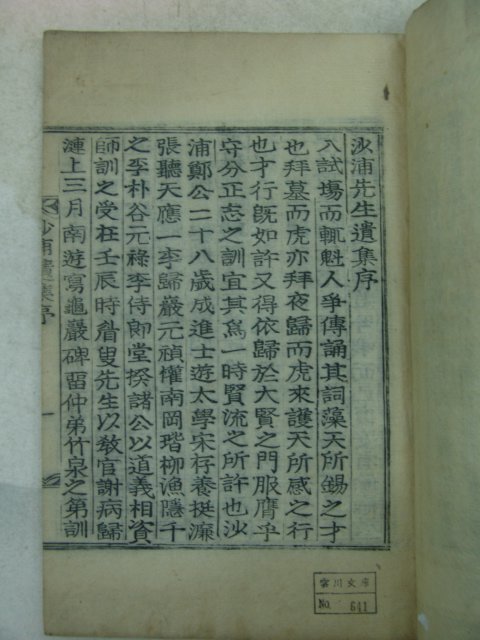 沙浦先生遺集序
入試塲而輒魁人爭傳誦其詞藻天所錫之才
也拜墓而虎亦拜夜歸而虎來護天所感之行
也才行旣如許又得依歸於大賢之門服膺乎
守分正志之訓宜其爲一時賢流之所許也沙
浦鄭公二十八歲成進士遊太學宋存養挺濂
張聽天應一李歸巖元禎懽南岡瑎柳漁隱千
之李朴谷元祿李侍郞堂揆諸公以道義相資
師訓之受在壬辰時眉叟先生以敎官謝病歸
漣上三月南遊寫龜巖碑留仲弟竹泉之第訓
沙浦遺集序
一
雲川文庫
No. 641